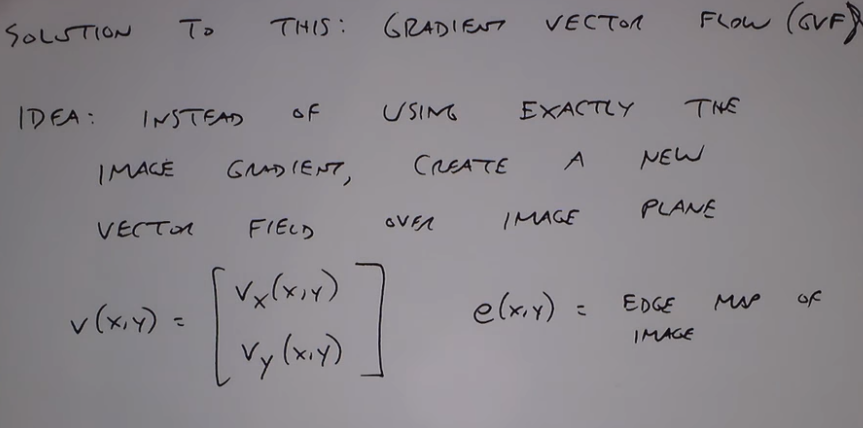 SOLUTION TO THIS: GRADIENT VECTOR FLOW (GVF)
IDEA: INSTEAD OF USING EXACTLY THE
IMAGE GRADIENT, CREATE A NEW
VECTOR FIELD OVER IMAGE PLANE
v(x,y) = [ Vx(x,y)
Vy(x,y) ]
e(x,y) = EDGE MAP OF
IMAGE